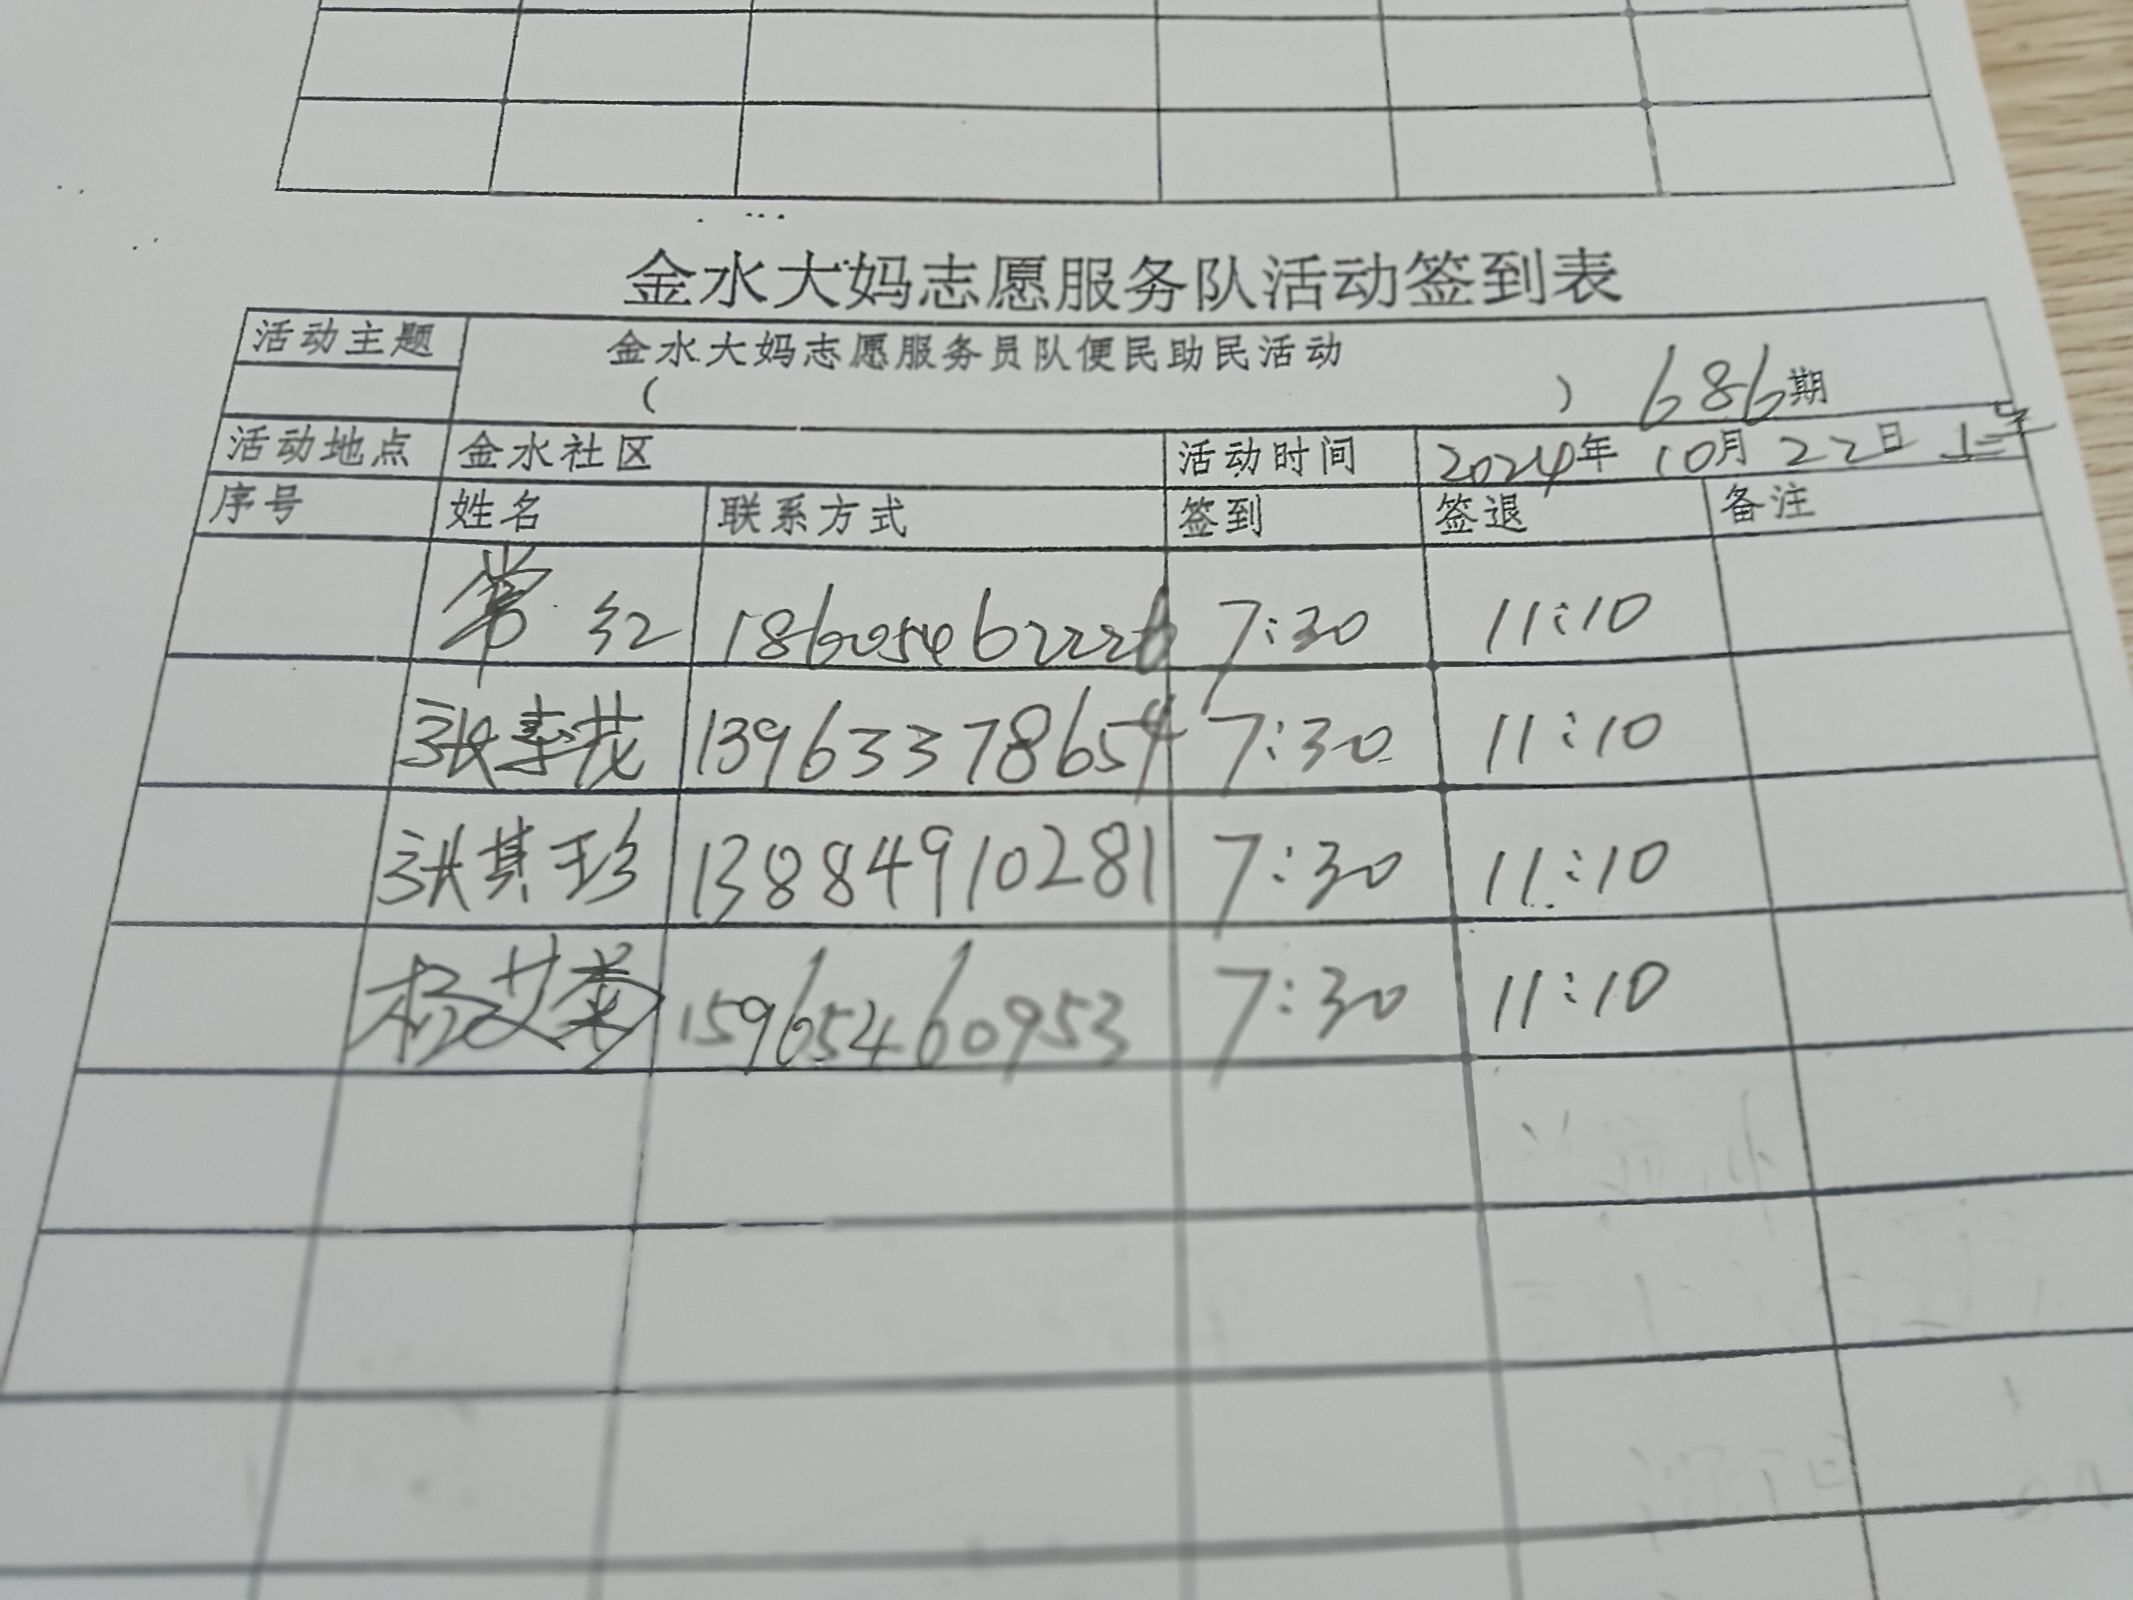 金水大妈志愿服务队活动签到表
活动主题 金水大妈志愿服务员队便民助民活动
( ) 686期
活动地点 金水社区 活动时间 2024年 10月 22日 上午
序号 姓名 联系方式 签到 签退 备注
常红 18605462226 7:30 11:10
张春花 13963378654 7:30 11:10
张其珍 13884910281 7:30 11:10
杨艾荣 15965460953 7:30 11:10